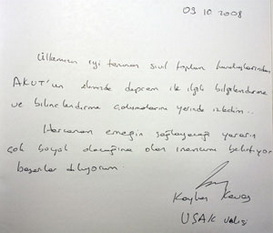 03.10.2008
Ülkemizin iyi tanınan sivil toplum kuruluşlarından
AKUT'un elimizde deprem ile ilgili bilgilendirme
ve bilinçlendirme çalışmalarını yerinde izledim.
Harcanan emeğin sağlayacağı yararın
çok büyük olacağına olan inancımı belirtiyor
başarılar diliyorum.
Kayhan Kavas
UŞAK Valisi